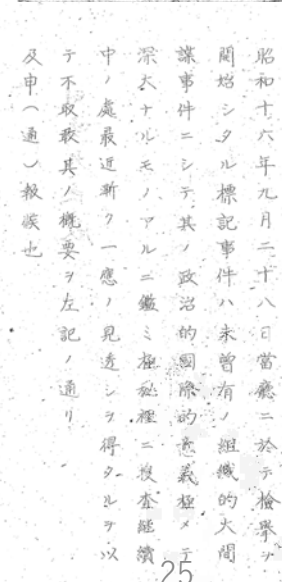 昭和十六年九月二十八日當廳ニ於テ檢擧ヲ
開始シタル標記事件ハ未曾有ノ組織的大間
諜事件ニシテ其ノ政治的國際的意義極メテ
深大ナルモノアルニ鑑ミ極秘裡ニ搜査繼續
中ノ處最近漸ク一應ノ見透シヲ得タルヲ以
テ不取敢其ノ概要ヲ左記ノ通リ
及申(通)報候也
25